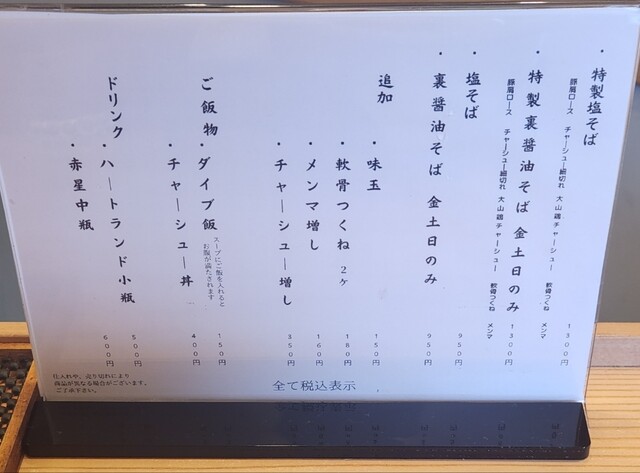 ・特製塩そば 1300円
豚肩ロース チャーシュー細切れ 大山鶏チャーシュー 軟骨つくね メンマ
・特製裏醤油そば 金土日のみ 1300円
豚肩ロース チャーシュー細切れ 大山鶏チャーシュー 軟骨つくね メンマ
・塩そば 950円
・裏醤油そば 金土日のみ 950円
追加
・味玉 150円
・軟骨つくね 2ケ 180円
・メンマ増し 160円
・チャーシュー増し 350円
ご飯物
・ダイブ飯 150円
スープにご飯を入れると
お腹が満たされます
・チャーシュー丼 400円
ドリンク
・ハートランド小瓶 500円
・赤星中瓶 600円
仕入れや、売り切れにより
商品が異なる場合がございます。
ご了承下さい。
全て税込表示